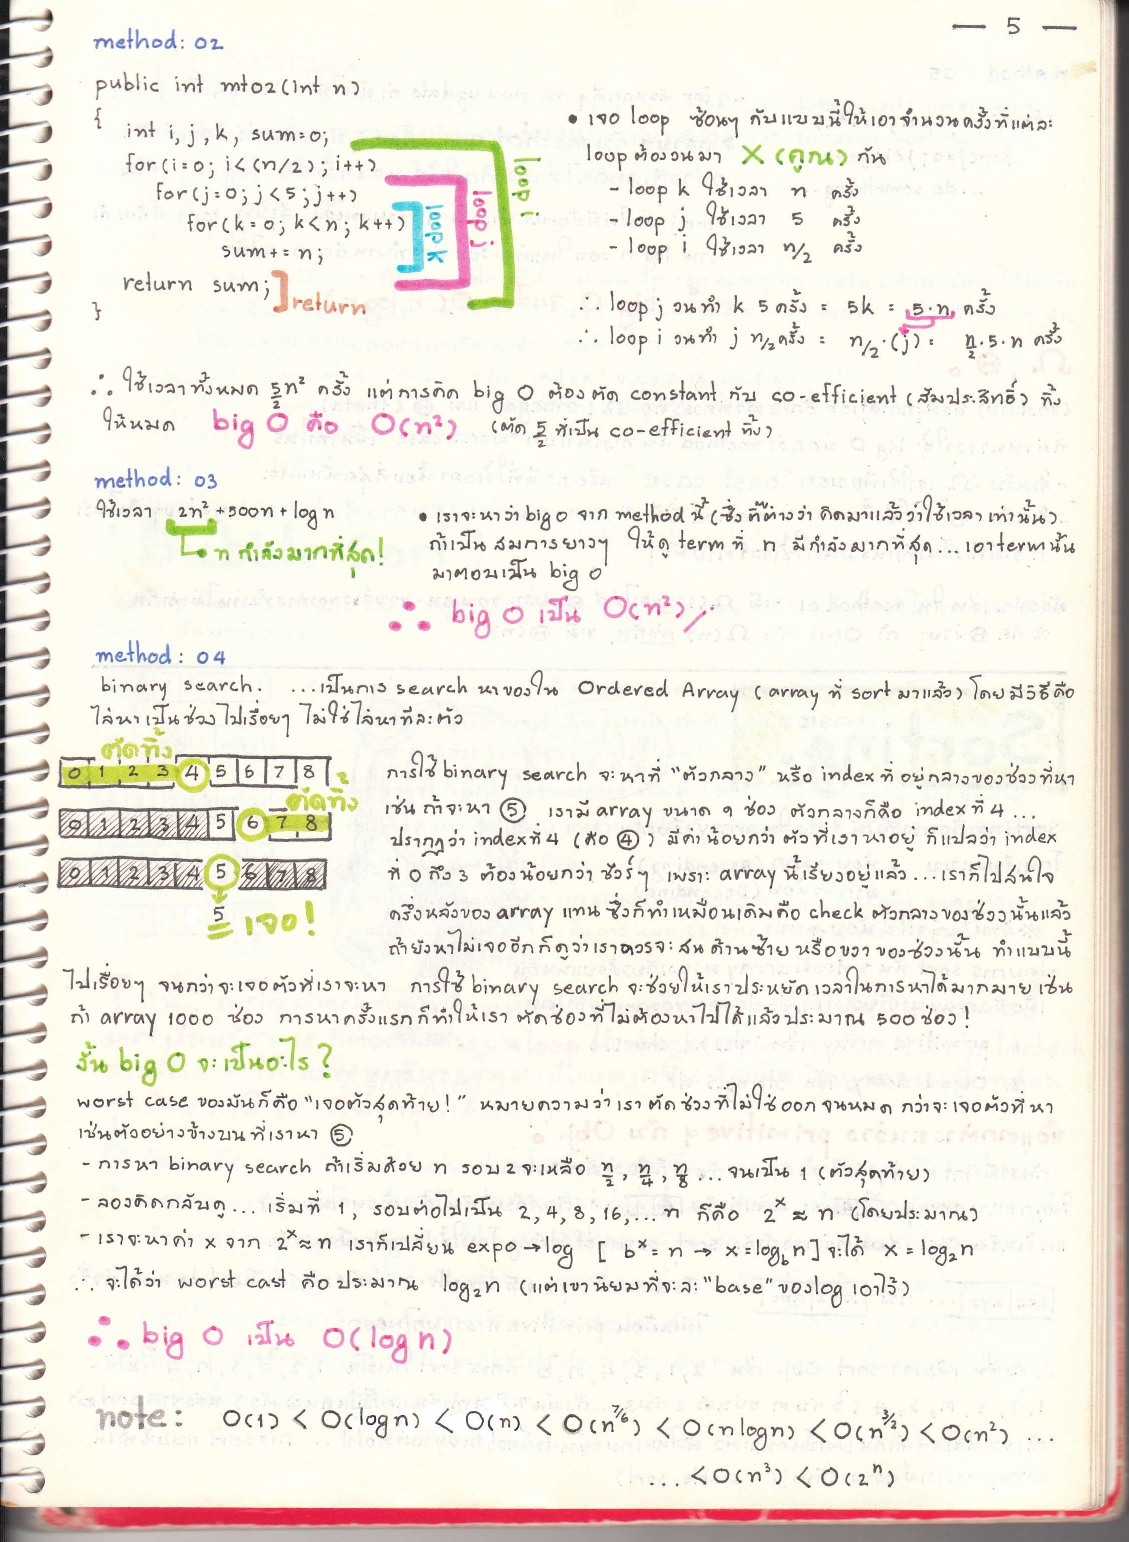 — 5 —
method: 02
public int mt02(int n)
{
int i, j, k, sum=0;
for(i=0; i<(n/2); i++)
for(j=0; j<5; j++)
for(k=0; k<n; k++)
sum+=n;
return sum;
}
loop k
loop j
loop i
return
• เจอ loop ซ้อนๆ กันแบบนี้ให้เอาจำนวนครั้งที่แต่ละ
loop ต้องวนมา X (คูณ) กัน
- loop k ใช้เวลา n ครั้ง
- loop j ใช้เวลา 5 ครั้ง
- loop i ใช้เวลา n/2 ครั้ง
∴ loop j วนทำ k 5 ครั้ง = 5k = 5·n ครั้ง
∴ loop i วนทำ j n/2 ครั้ง = n/2·(j) = n/2·5·n ครั้ง
∴ ใช้เวลาทั้งหมด 5/2 n² ครั้ง แต่การคิด big O ต้องตัด constant กับ co-efficient (สัมประสิทธิ์) ทิ้ง
ให้หมด big O คือ O(n²) (ตัด 5/2 ที่เป็น co-efficient ทิ้ง)
method: 03
ใช้เวลา 2n² + 500n + log n
n กำลังมากที่สุด!
• เราจะหาว่า big O จาก method นี้ (ซึ่งตี๊ต่างว่า คิดมาแล้วว่าใช้เวลาเท่านั้น)
ถ้าเป็น สมการยาวๆ ให้ดู term ที่ n มีกำลังมากที่สุด... เอา term นั้น
มาตอบเป็น big O
∴ big O เป็น O(n²)
method: 04
binary search. ...เป็นการ search หาของใน Ordered Array (array ที่ sort มาแล้ว) โดยมีวิธีคือ
ไล่หาเป็นช่วงไปเรื่อยๆ ไม่ใช่ไล่หาทีละตัว
ตัดทิ้ง
0 1 2 3 4 5 6 7 8
ตัดทิ้ง
0 1 2 3 4 5 6 7 8
0 1 2 3 4 5 6 7 8
5
เจอ!
การใช้ binary search จะหาที่ "ตัวกลาง" หรือ index ที่อยู่กลางของช่วงที่หา
เช่น ถ้าจะหา ⑤ เรามี array ขนาด 9 ช่อง ตัวกลางก็คือ index ที่ 4 ...
ปรากฏว่า index ที่ 4 (คือ ④) มีค่าน้อยกว่า ตัวที่เราหาอยู่ ก็แปลว่า index
ที่ 0 ถึง 3 ต้องน้อยกว่า ชัวร์ๆ เพราะ array นี้เรียงอยู่แล้ว...เราก็ไปสนใจ
ครึ่งหลังของ array แทน ซึ่งก็ทำเหมือนเดิมคือ check ตัวกลางของช่วงนั้นแล้ว
ถ้ายังหาไม่เจออีกก็ดูว่าเราควรจะสน ด้านซ้าย หรือขวา ของช่วงนั้น ทำแบบนี้
ไปเรื่อยๆ จนกว่าจะเจอตัวที่เราจะหา การใช้ binary search จะช่วยให้เราประหยัดเวลาในการหาได้มากมาย เช่น
ถ้า array 1000 ช่อง การหาครั้งแรกก็ทำให้เรา ตัดช่องที่ไม่ต้องหาไปได้แล้วประมาณ 500 ช่อง!
งั้น big O จะเป็นอะไร?
worst case ของมันก็คือ "เจอตัวสุดท้าย!" หมายความว่าเราตัดช่วงที่ไม่ใช่ออกจนหมด กว่าจะเจอตัวที่หา
เช่นตัวอย่างข้างบน ที่เราหา ⑤
- การหา binary search ถ้าเริ่มด้วย n รอบ 2 จะเหลือ n/2, n/4, n/8 ... จนเป็น 1 (ตัวสุดท้าย)
- ลองคิดกลับดู... เริ่มที่ 1, รอบต่อไปเป็น 2, 4, 8, 16,... n ก็คือ 2ˣ ≈ n (โดยประมาณ)
- เราจะหาค่า x จาก 2ˣ ≈ n เราก็เปลี่ยน expo → log [ bˣ = n → x = log_b n ] จะได้ x = log₂n
∴ จะได้ว่า worst cast คือ ประมาณ log₂n (แต่เขานิยมที่จะละ "base" ของ log เอาไว้)
∴ big O เป็น O(log n)
note: O(1) < O(log n) < O(n) < O(n^7/6) < O(n log n) < O(n^3/2) < O(n²) ...
... < O(n³) < O(2ⁿ)